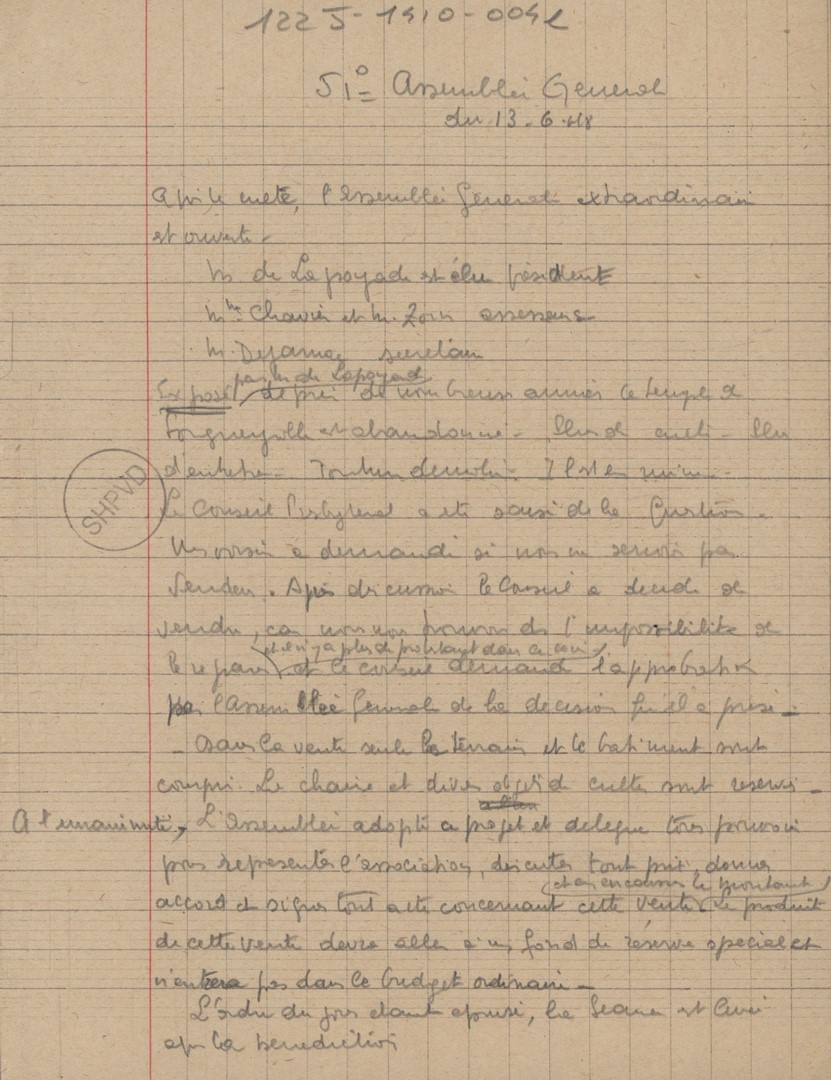 122 J-1410-0041
51° Assemblée General
du 13-6-48
Après le culte, l'Assemblée General extraordinair
est ouverte -
M. de Lapoyade est élu président
Mme Chavier et M. Zorn assesseurs
M. Dejarnac secretair
Exposé par M. de Lapoyade depuis de nombreuse années le temple de
Longueville est abandonné - Plus de culte - Plus
d'entretien - Il est en ruine -
Le Conseil Presbyteral a eté saisi de la Question -
Un voisin a demandé si nous ne serions pas
vendeur. Après discussion le Conseil a decidé de
vendre, car nous nous trouvons ds l'impossibilité de
et il n'y a plus de protestant dans ce coin
le reparer et le conseil demande l'approbation
par l'Assemblée General de la decision qu'il a prise -
- Dans la vente seuls le terrain et le batiment sont
compris. La chaire et divers objets de culte sont reservés -
A l'unanimité, L'Assemblée adopte ce projet et delegue tous pouvoirs
pour representer l'association, discuter tout prix, donner
et en encaisser le montant
accord et signer tout acte concernant cette vente Le produit
de cette vente devra aller à un fond de réserve special et
n'entrera pas dans le budget ordinaire -
L'Ordre du jour etant epuisé, la Seance est levée
après la benediction
SHPVD